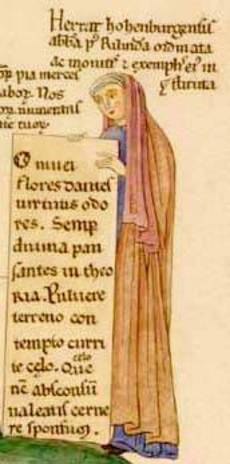 Herrat hohenburgensis
abba. p' Rilinda ordinata
ac monitis & exempl' ei' in
stituta
pia merces
abor. Nos
O nivei
flores dantes
virtutis odo
res. Semp
divina pau
santes in theo
ria. Pulvere
terreno con
tempto curri
te celo. Que
celo
nc absconsu
valeatis cerne
re sponsum.